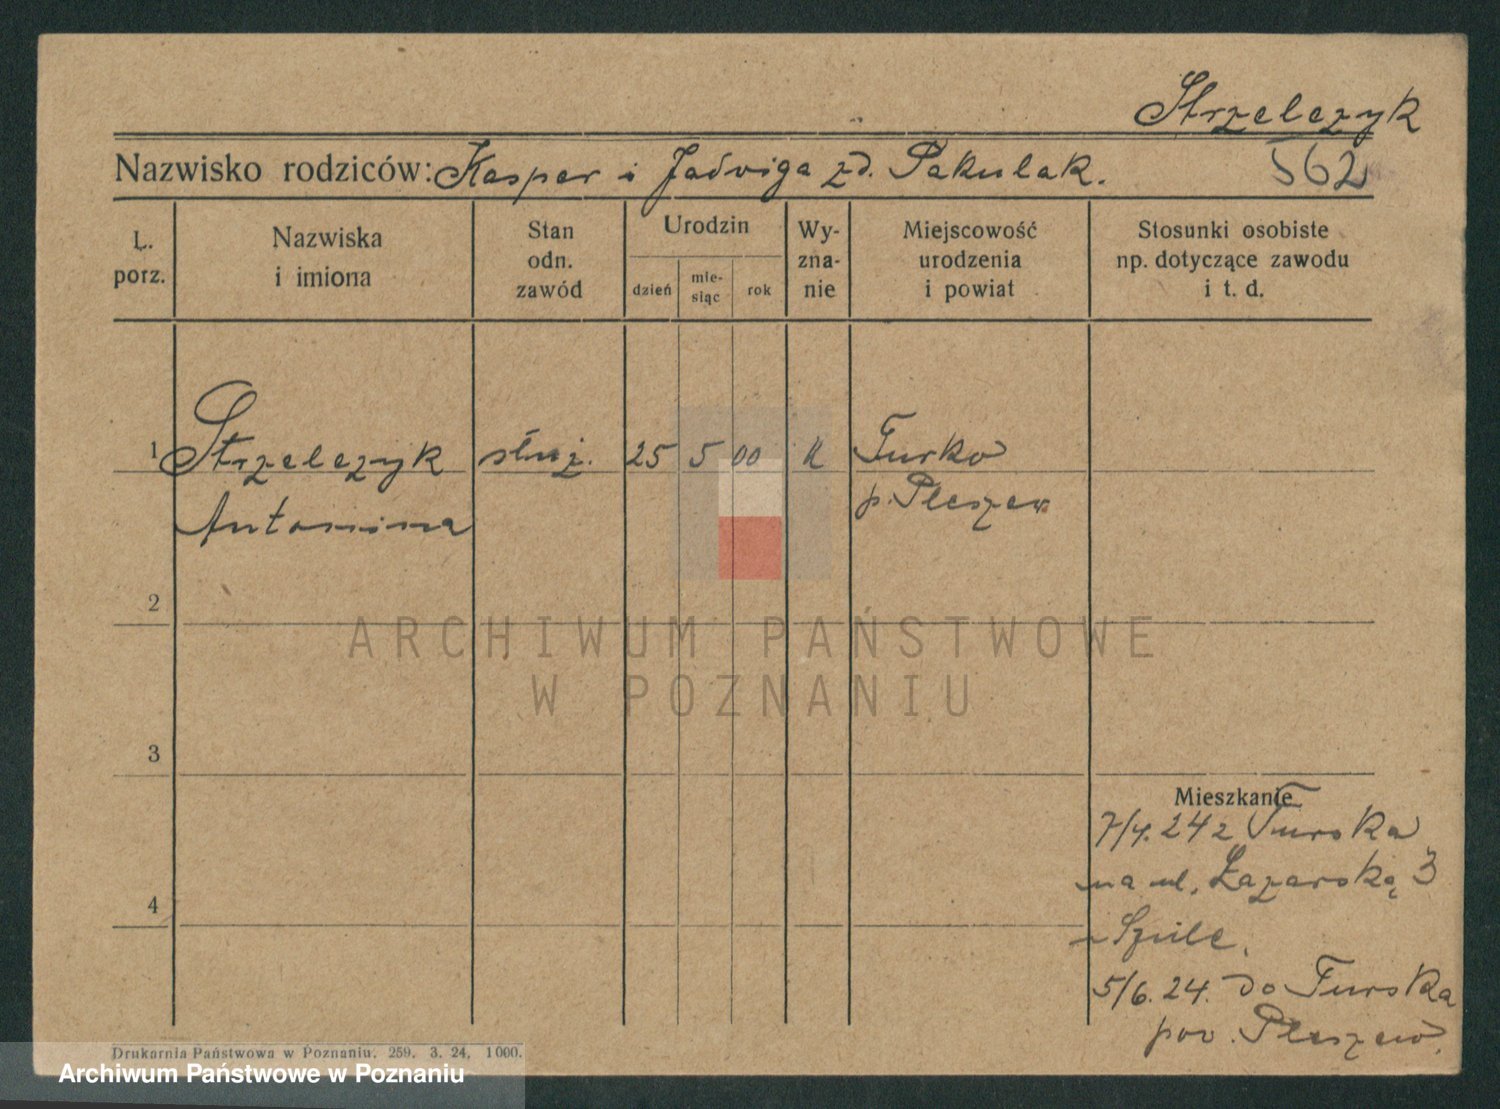 Strzelczyk
Nazwisko rodziców: Kasper i Jadwiga zd. Pakulak.
562
L. porz.
Nazwiska i imiona
Stan odn. zawód
Urodzin
dzień
mie-
siąc
rok
Wy-
zna-
nie
Miejscowość urodzenia i powiat
Stosunki osobiste
np. dotyczące zawodu
i t. d.
1 Strzelczyk służ. 25 5 00 K Tursko
Antonina p. Pleszew
2
ARCHIWUM PAŃSTWOWE
W POZNANIU
3
Mieszkanie
7/4. 24 z Turska
na ul. Łazarską 3
Szulc.
4
5/6. 24. do Turska
pow. Pleszew.
Drukarnia Państwowa w Poznaniu. 259. 3. 24, 1000.
Archiwum Państwowe w Poznaniu